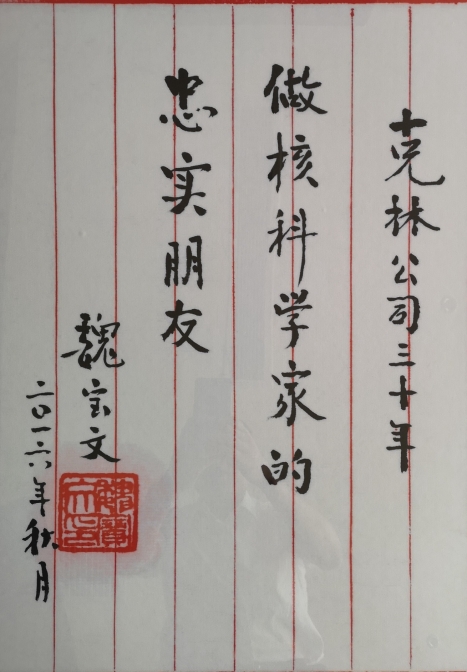 克林公司三十年
做核科学家的
忠实朋友
魏宝文
二〇一六年秋月